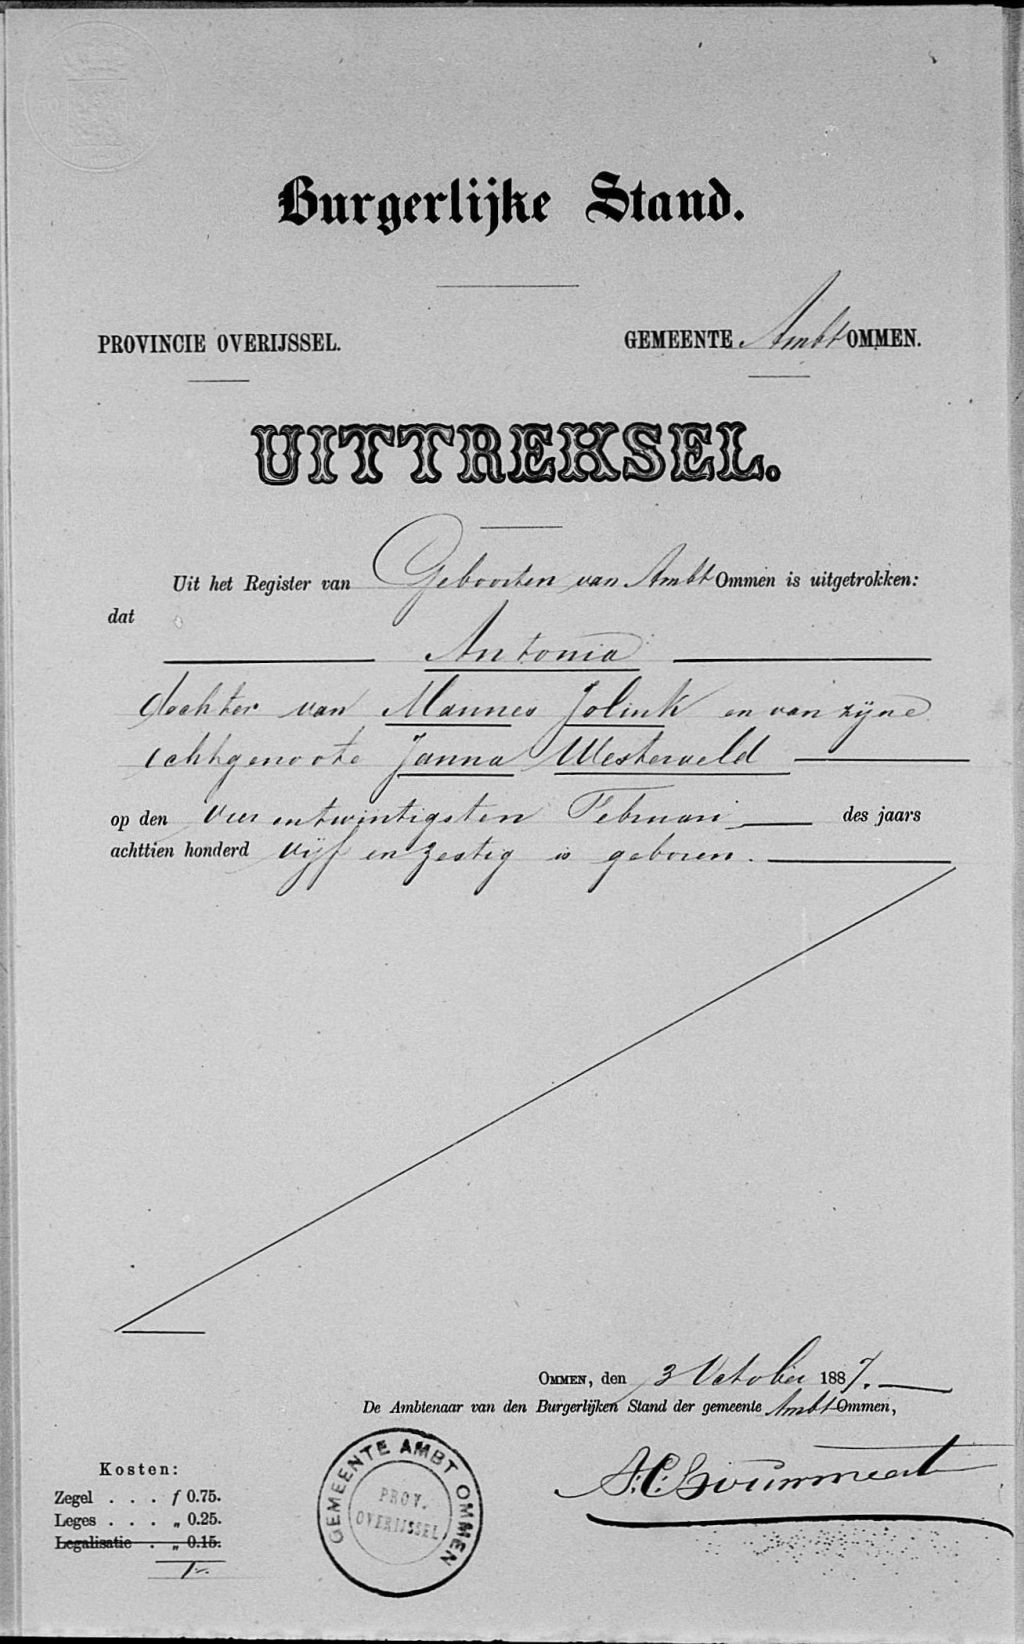 Burgerlijke Stand.
PROVINCIE OVERIJSSEL. GEMEENTE Ambt OMMEN.
UITTREKSEL.
Uit het Register van Geboorten van Ambt Ommen is uitgetrokken:
dat
Antonia
dochter van Mannes Jolink en van zijne
echtgenoote Janna Westerveld
op den vier en twintigsten Februari des jaars
achttien honderd vijf en zestig is geboren.
Ommen, den 3 October 1887.
De Ambtenaar van den Burgerlijken Stand der gemeente Ambt Ommen,
Kosten:
Zegel . . . f 0.75.
Leges . . . „ 0.25.
Legalisatie . „ 0.15.
1.-
GEMEENTE AMBT OMMEN
PROV.
OVERIJSSEL